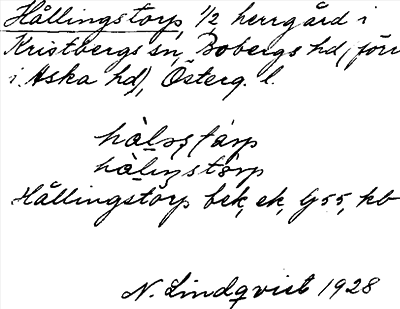 Hållingstorp, 1/2 herrgård i
Kristbergs sn, Bobergs hd (förr
i Aska hd), Österg. l.
Hållingstorp bek, ek, G55, kb
N. Lindqvist 1928